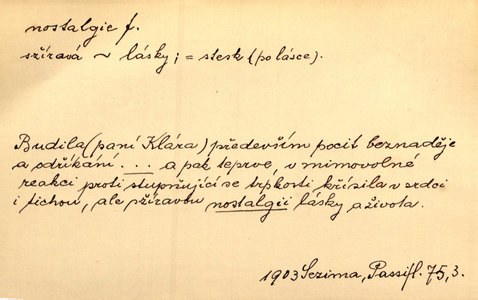 nostalgie f.
sžíravá ~ lásky; = stesk (po lásce).
Budila (paní Klára) především pocit beznaděje
a odříkání ... a pak teprve, v mimovolné
reakci proti stupňující se trpkosti křísila v srdci
i tichou, ale sžíravou nostalgii lásky a života.
1903 Sezima, Passifl. 75, 3.